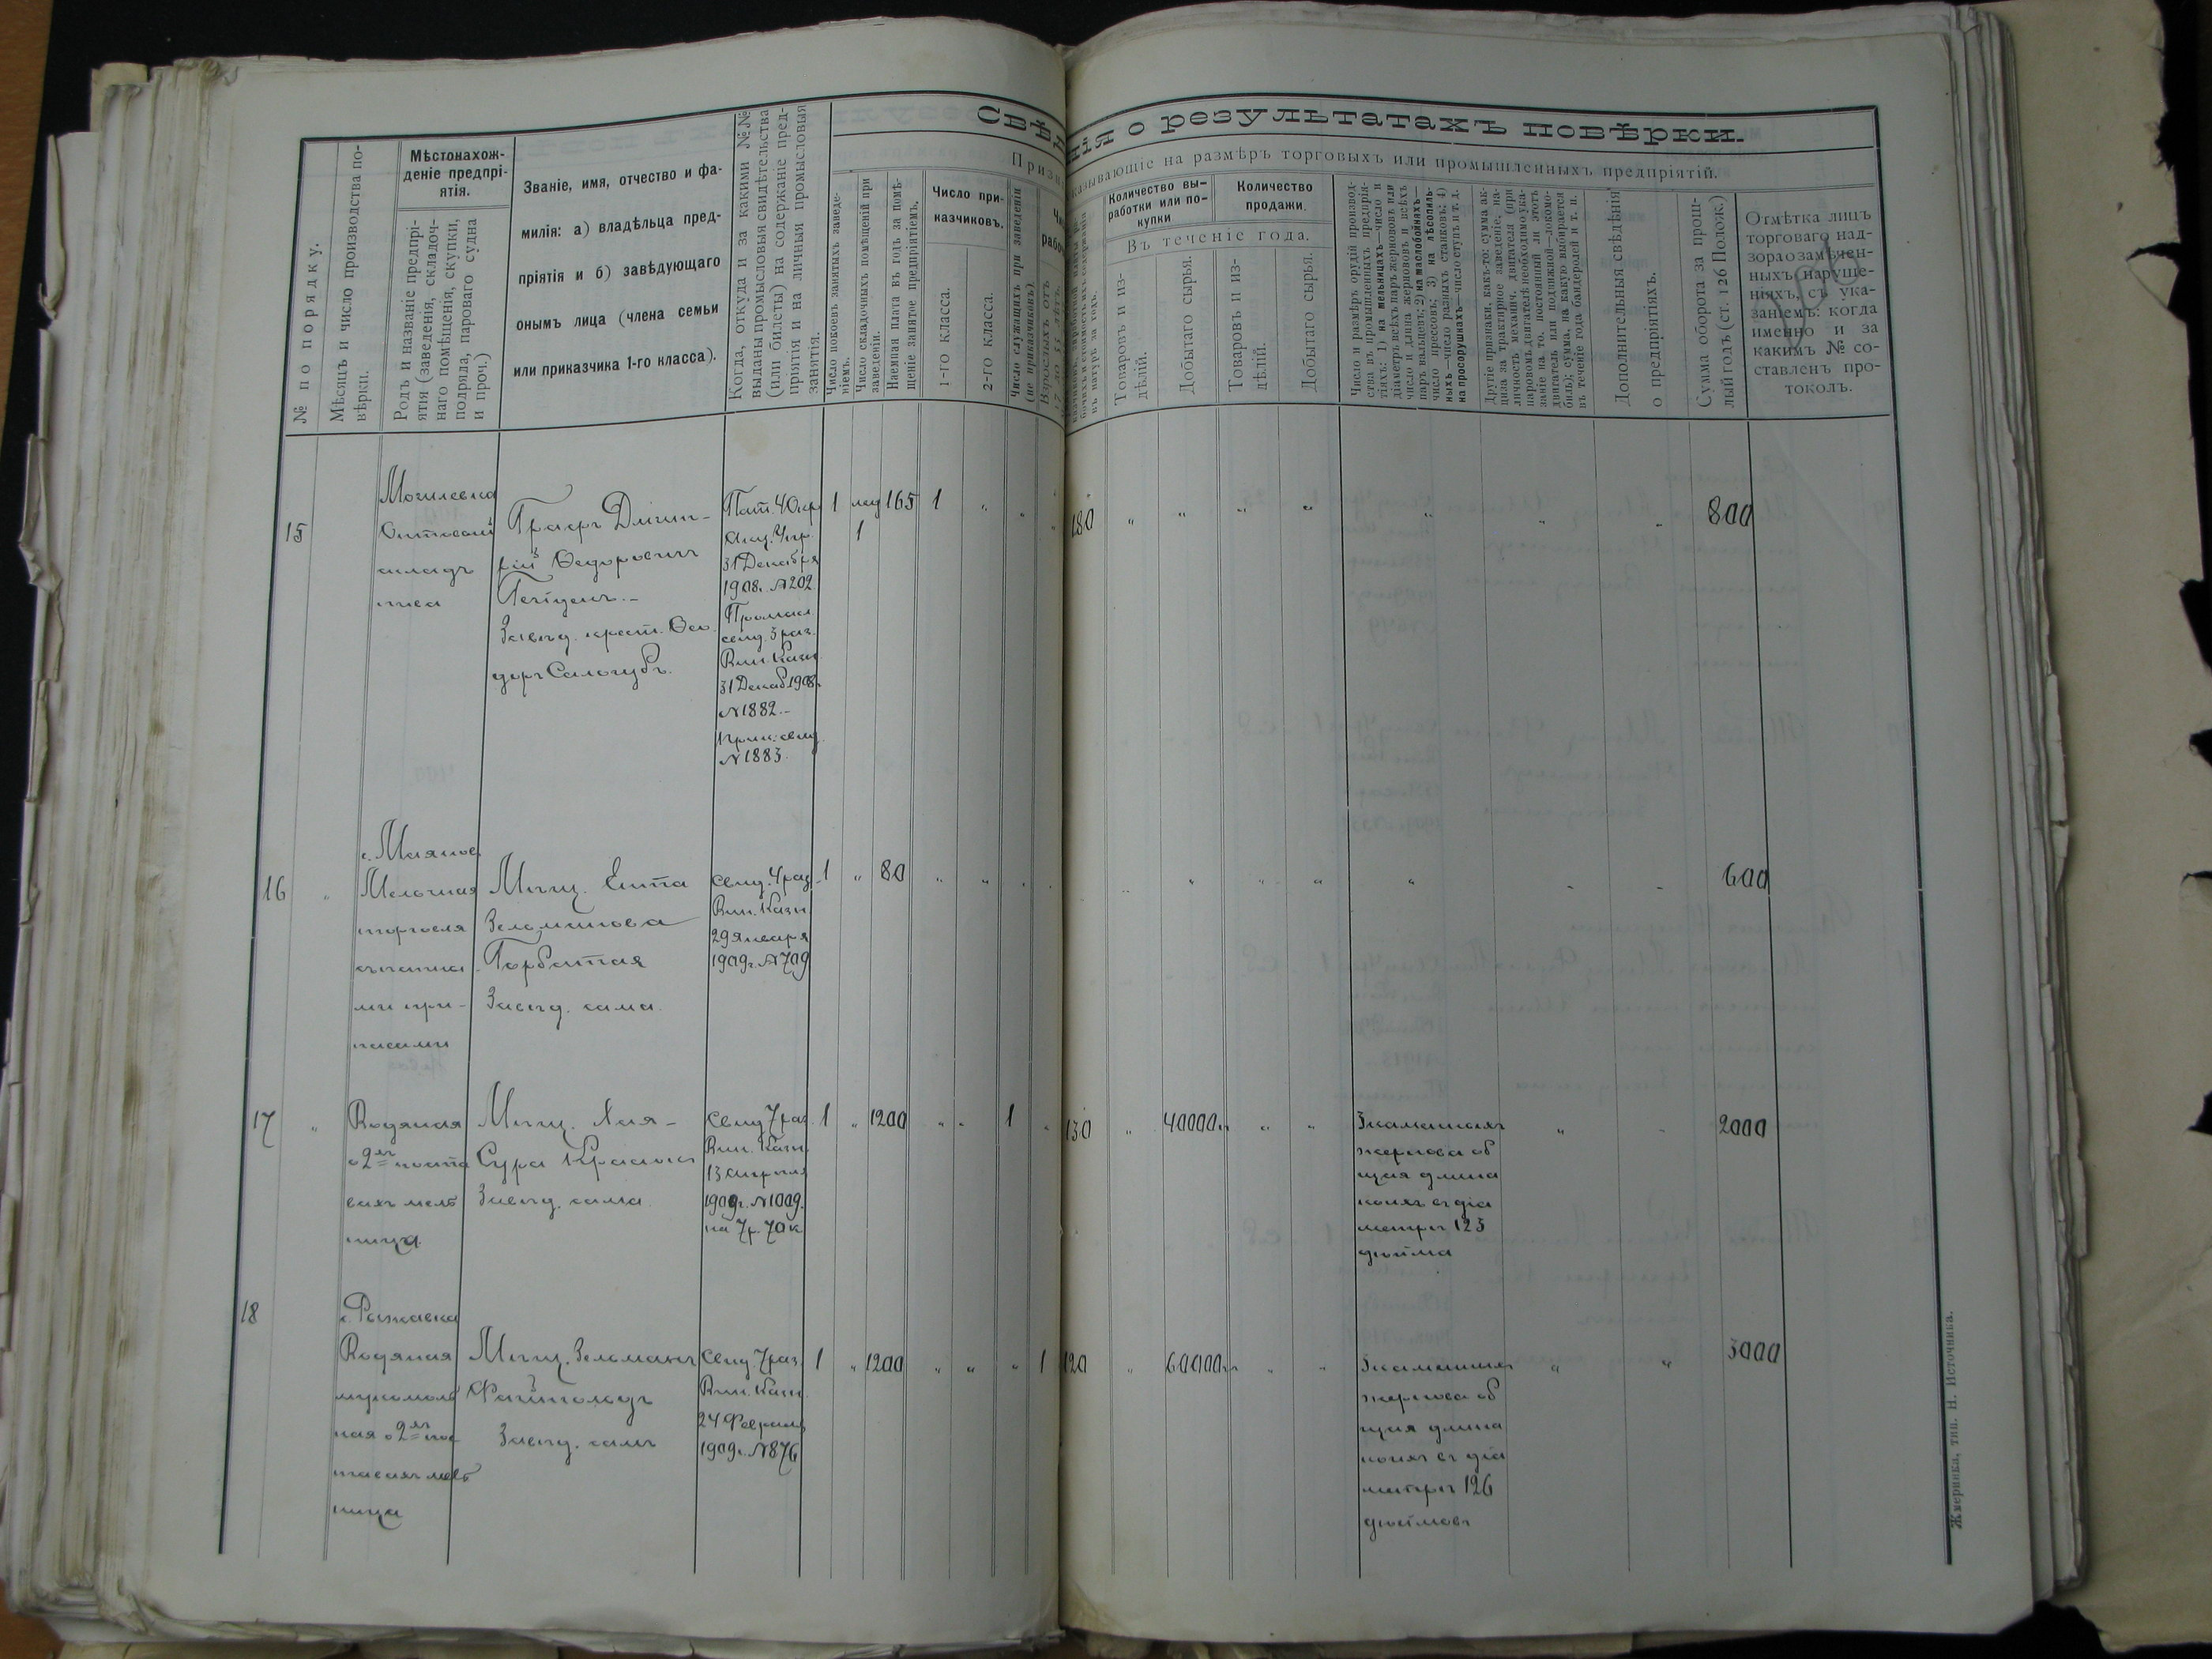 Свѣдѣнія о результатахъ повѣрки.
указывающіе на размѣръ торговыхъ или промышленныхъ предпріятій.
№ по порядку.
Мѣсяцъ и число производства по-
вѣрки.
Мѣстонахож-
деніе предпрі-
ятія.
Родъ и названіе предпрі-
ятія (заведенія, складоч-
наго помѣщенія, скупки,
подряда, парового судна
и проч.)
Званіе, имя, отчество и фа-
милія: а) владѣльца пред-
пріятія и б) завѣдующаго
онымъ лица (члена семьи
или приказчика 1-го класса).
Когда, откуда и за какими №№
выданы промысловыя свидѣтельства
(или билеты) на содержаніе пред-
пріятія и на личныя промысловыя
занятія.
Число покоевъ занятыхъ заведе-
ніемъ.
Число складочныхъ помѣщеній при
заведеніи.
Наемная плата въ годъ за помѣ-
щеніе занятое предпріятіемъ.
Число при-
казчиковъ.
1-го класса.
2-го класса.
Число служащихъ при заведеніи
(не приказчиковъ).
Взрослыхъ отъ
17 до 55 лѣтъ.
Количество вы-
работки или по-
купки
Количество
продажи.
Въ теченіе года.
Товаровъ и из-
дѣлій.
Добытаго сырья.
Товаровъ и из-
дѣлій.
Добытаго сырья.
Число и размѣръ орудій производ-
ства въ промышленныхъ предпрія-
тіяхъ: 1) на мельницахъ—число и
діаметръ всѣхъ паръ жернововъ или
число и длина жернововъ и всѣхъ
паръ вальцевъ; 2) на маслобойняхъ—
число прессовъ; 3) на лѣсопиль-
ныхъ—число разныхъ станковъ; 4)
на просорушкахъ—число ступъ и т. д.
Дополнительныя свѣдѣнія
о предпріятіяхъ.
Сумма оборота за прош-
лый годъ (ст. 126 Полож.)
Отмѣтка лицъ
торговаго над-
зора о замѣчен-
ныхъ наруше-
ніяхъ, съ ука-
заніемъ: когда
именно и за
какимъ № со-
ставленъ про-
токолъ.
15
Могилевка
Оптовый
складъ
пива
Графъ Дмит-
рій Ѳедоровичъ
Гейденъ.–
Завѣд. крест. Ѳео
доръ Сологубъ.
Пат. 4 Окр
Акц. Упр.
31 Декабря
1908г. №202.
Промысл
свид. 3 раз.
Вин. Казн.
31 Декаб 1908г
№1882.–
1 прик. свид.
№1883.
1
лед
1
165
1
180
800
16
Мелочная
торговля
съѣстны
ми при-
пасами
Мѣщ. Ента
Зельманова
Горбатая
Завѣд. сама.
Свид. 4 раз.
Вин. Казн.
29 Января
1909г. №709
1
80
600
17
Водяная
о 2хъ поста
вахъ мель
ница.
Мѣщ. Хая-
Сура
Завѣд. сама.
Свид 7 раз.
Вин. Казн.
13 Апрѣля
1909г. №1009.
на 7р. 70к
1
1200
1
130
40000
3 каменныхъ
жернова об
щая длина
коихъ въ діа
метрѣ 123
дюйма
2000
18
Водяная
мукомоль
ная о 2хъ пос
тавахъ мель
ница
Мѣщ. Зельманъ
Файнгольцъ
Завѣд. самъ
Свид. 7 раз.
Вин. Казн.
24 Февраля
1909г. №876
1
1200
1
120
60000
3 каменныхъ
жернова об
щая длина
коихъ въ діа
метрѣ 126
дюймовъ
3000
Жмеринка, тип. Н. Источника.